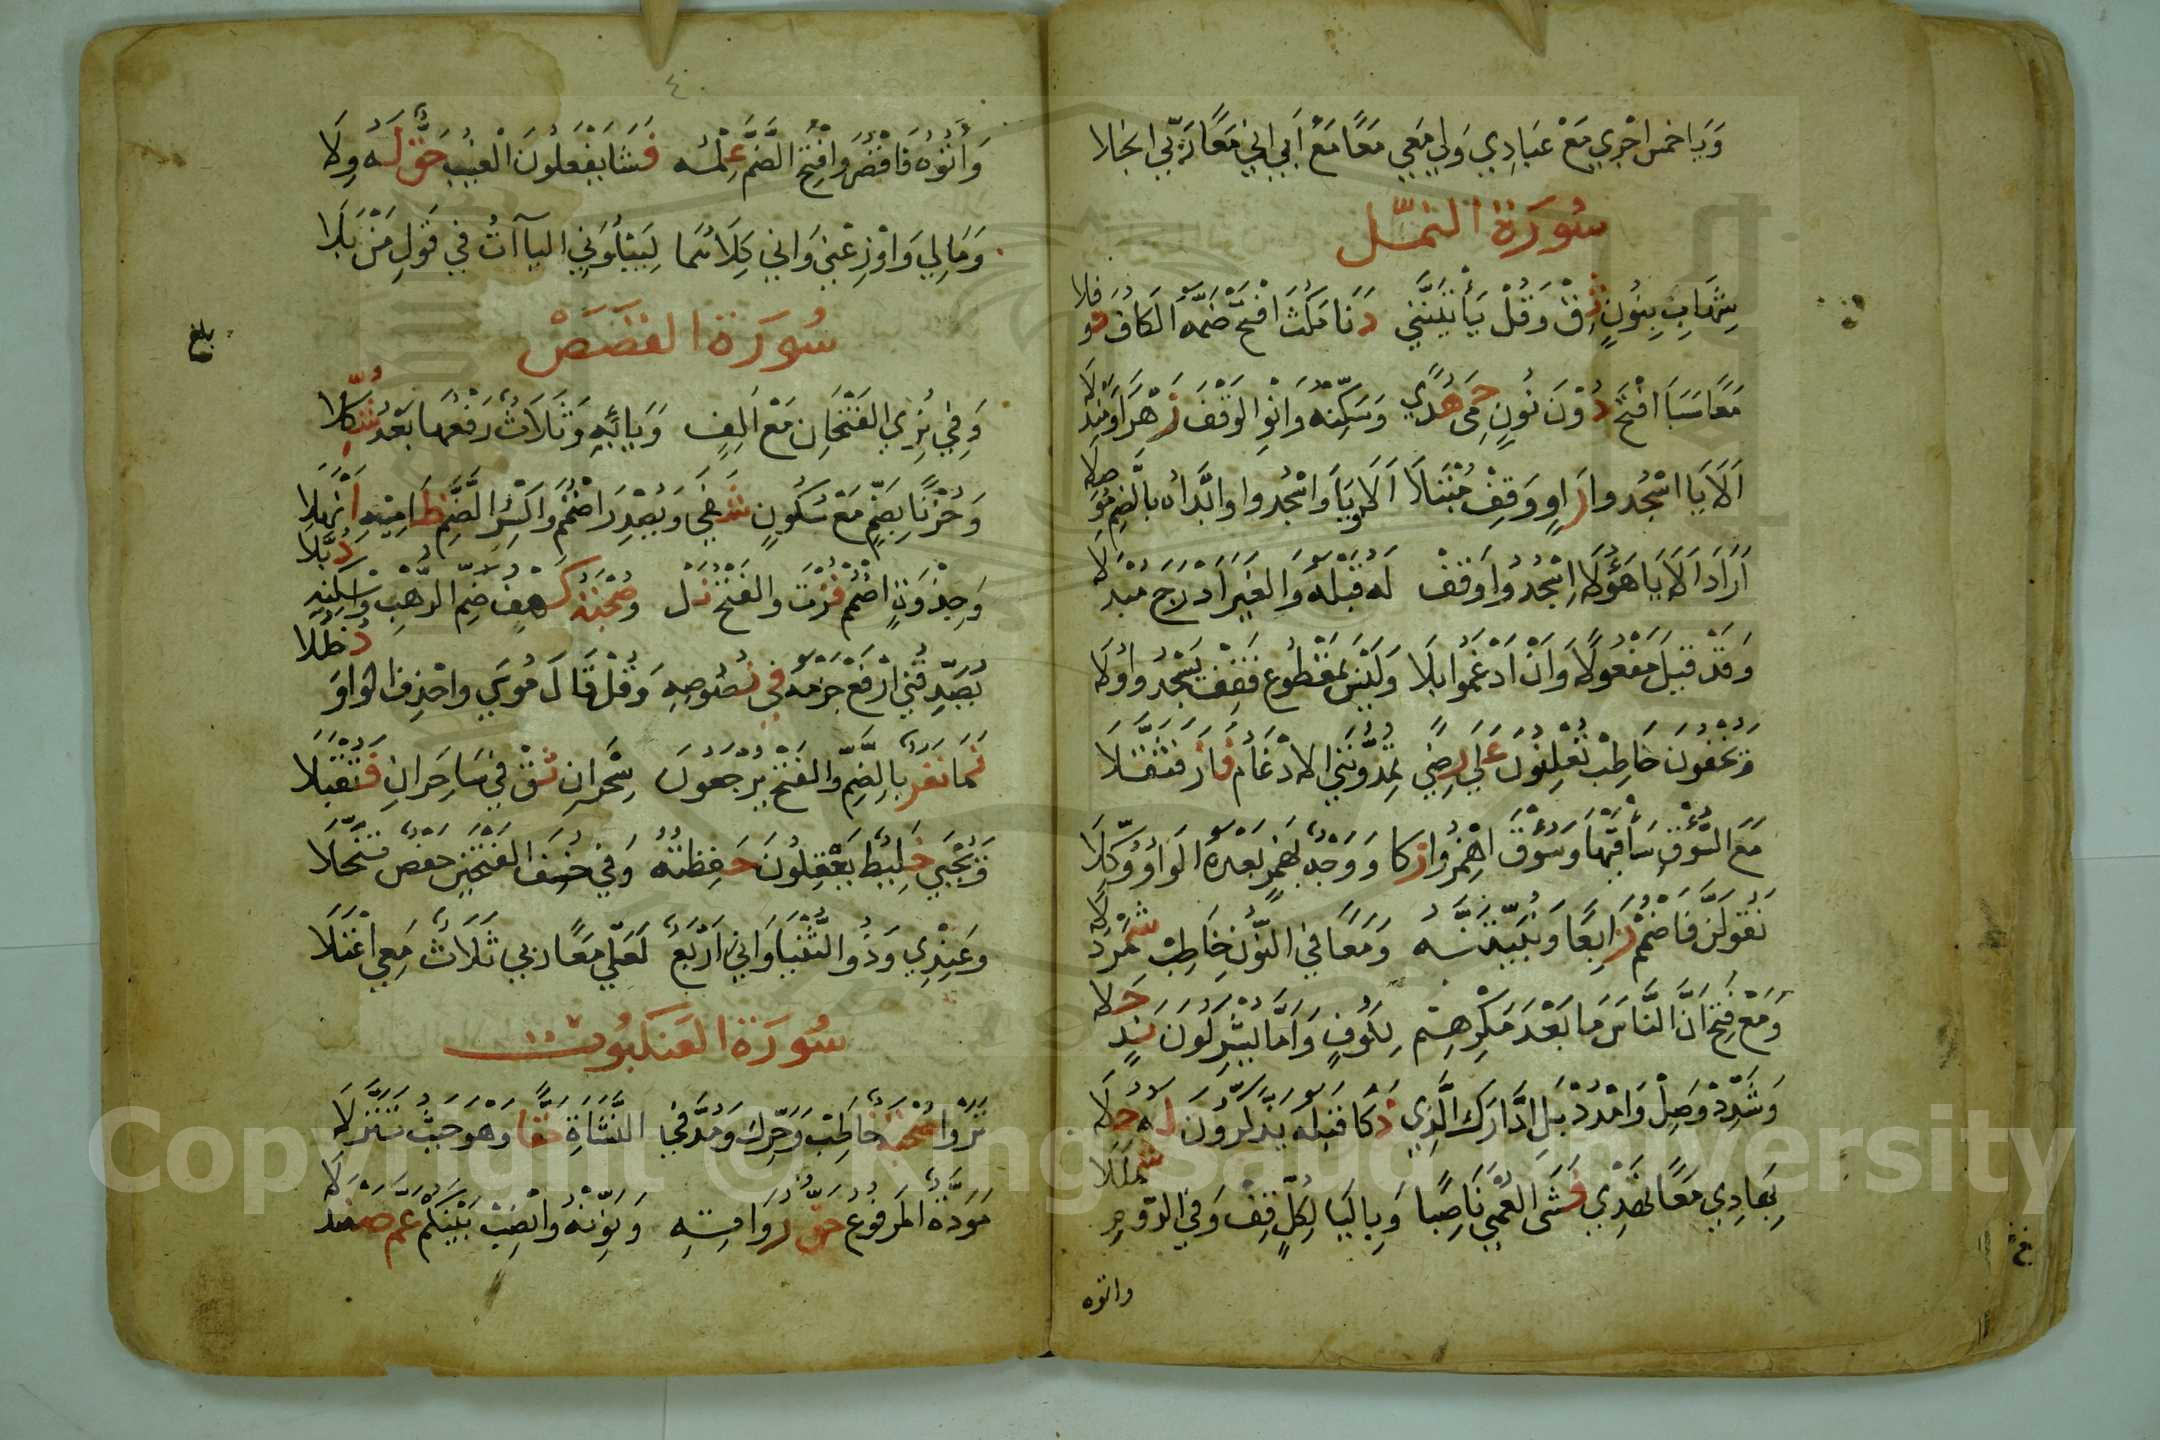 وَيَا خمس اجْرِي مَعْ عِبَادِي وَلِي مَعِي مَعًا مَعْ أَبِي إِنِّي مَعًا رَبِّيَ انجلا
سُورَة النمل
شِهَابٍ بِنُونٍ ثِقْ وَقُلْ يَأْتِيَنَّنِي دَنَا مَكُثَ افْتَحْ ضَمَّةَ الكَافِ نَوْفَلا
مَعًا سَبَأَ افْتَحْ دُوْنَ نُونٍ حِمًى هُدًى وَسَكِّنْهُ وَانْوِ الوَقْفَ زُهْرًا وَمَنْدَلَا
أَلَا يَا اسْجُدُوا رَاوٍ وَقِفْ مُبْتَلًا أَلَا وَيَا وَاسْجُدُوا وَابْدَأْهُ بِالضَّمِّ مُوْصِلَا
أَرَادَ أَلَا يَا هَؤُلَا اسْجُدُوا وَقِفْ لَهُ قَبْلَهُ وَالغَيْرُ أَدْرَجَ مُبْدِلَا
وَقَدْ قِيلَ مَفْعُولًا وَأَنْ أَدْغَمُوا بِلَا وَلَيْسَ بِمَقْطُوعٍ فَقِفْ يَسْجُدُوا وَلَا
وَيُخْفُونَ خَاطِبْ يُعْلِنُونَ عَلَى رِضًى تُمِدُّونَنِي الادْغَامُ فَازَ فَثَقَّلَا
مَعَ السُّوْقِ سَاقَيْهَا وَسُوْقِ اهْمِزُوا زكا وَوَجْهٌ بِهَمْزٍ بَعْدَهُ الوَاوُ وُكِّلَا
نَقُولَنَّ فَاضْمُمْ رَابِعًا وَنُبَيِّتَنَّـ ـنَّهُ وَمَعًا فِي النُّونِ خَاطِبْ شَمَرْدَلَا
وَمَعْ فَتْحِ أَنَّ النَّاسَ مَا بَعْدَ مَكْرِهِمْ لِكُوفٍ وَأَمَّا يُشْرِكُونَ نَدٍ حَلَا
وَشَدِّدْ وَصِلْ وَامْدُدْ بَلِ ادَّارَكَ الَّذِي ذَكَا قَبْلَهُ يَذَّكَّرُونَ لَهُ حُلَا
بِهَادِي مَعًا تَهْدِي فَشَى العُمْيَ نَاصِبًا وَبِاليَا لِكُلٍّ قِفْ وَفِي الرُّوْمِ شَمْلَلَا
واتوه
٤٠
وَآتُوْهُ فَاقْصُرْ وَافْتَحِ الضَّمَّ عِلْمُهُ فَشَا يَفْعَلُونَ الغَيْبُ حَقٌّ لَهُ وِلَا
وَمَا لِي وَأَوْزِعْنِي وَإِنِّي كِلَاهُمَا لِيَبْلُوَنِي اليَاآتُ فِي قَوْلِ مَنْ بَلَا
سُورَة القصص
وَفِي نُرِيَ الفَتْحَانِ مَعْ أَلِفٍ وَيَائِهِ وَثَلَاثٌ رَفْعُهَا بَعْدُ شُكِّلَا
وَحُزْنًا بِضَمٍّ مَعْ سُكُونٍ شَفَى وَيَصْدِرَ اضْمُمْ وَاكْسِرِ الضَّمَّ ظَامِيْهِ أَنْهَلَا
وَجِذْوَةٍ اضْمُمْ فُزْتَ وَالفَتْحَ نَلْ وَصُحْبَةٌ كَهْفٌ ضَمُّ الرَّهْبِ وَاسْكِنْهُ ذُبَّلَا
يُصَدِّقُنِي ارْفَعْ جَزْمَهُ فِي نُصُوصِهِ وَقُلْ قَالَ مُوسَى وَاحْذِفِ الوَاوَ دُخْلُلَا
نَمَا نَفَرٌ بِالضَّمِّ وَالفَتْحِ يَرْجِعُونَ سِحْرَانِ ثِقْ فِي سَاحِرَانِ فَتُقْبَلَا
وَيُجْبَى خَلِيطٌ يَعْقِلُونَ حَفِظْتُهُ وَفِي خُسِفَ الفَتْحَيْنِ حَفْصٌ تَنَخَّلَا
وَعِنْدِي وَذُو الثُّنْيَا وَإِنِّي أَرْبَعٌ لَعَلِّي مَعًا رَبِّي ثَلَاثٌ مَعِي اعْتَلَا
سُورَة العنكبوت
تَرَوْا صُحْبَةٌ خَاطِبْ وَحَرِّكْ وَمُدَّ فِي النَّشَاةِ حَقًّا وَهْوَ حَيْثُ تَنَزَّلَا
مَوَدَّةً المَرْفُوعُ حَقُّ رُوَاتِهِ وَنَوِّنْهُ وَانْصِبْ بَيْنَكُمْ عَمَّ صَنْدَلَا
بلغ
Copyright © King Saud University